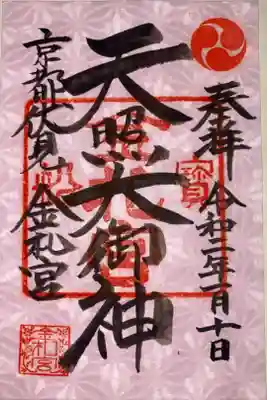 奉拝 令和二年一月十日
天照大御神
京都伏見 金札宮